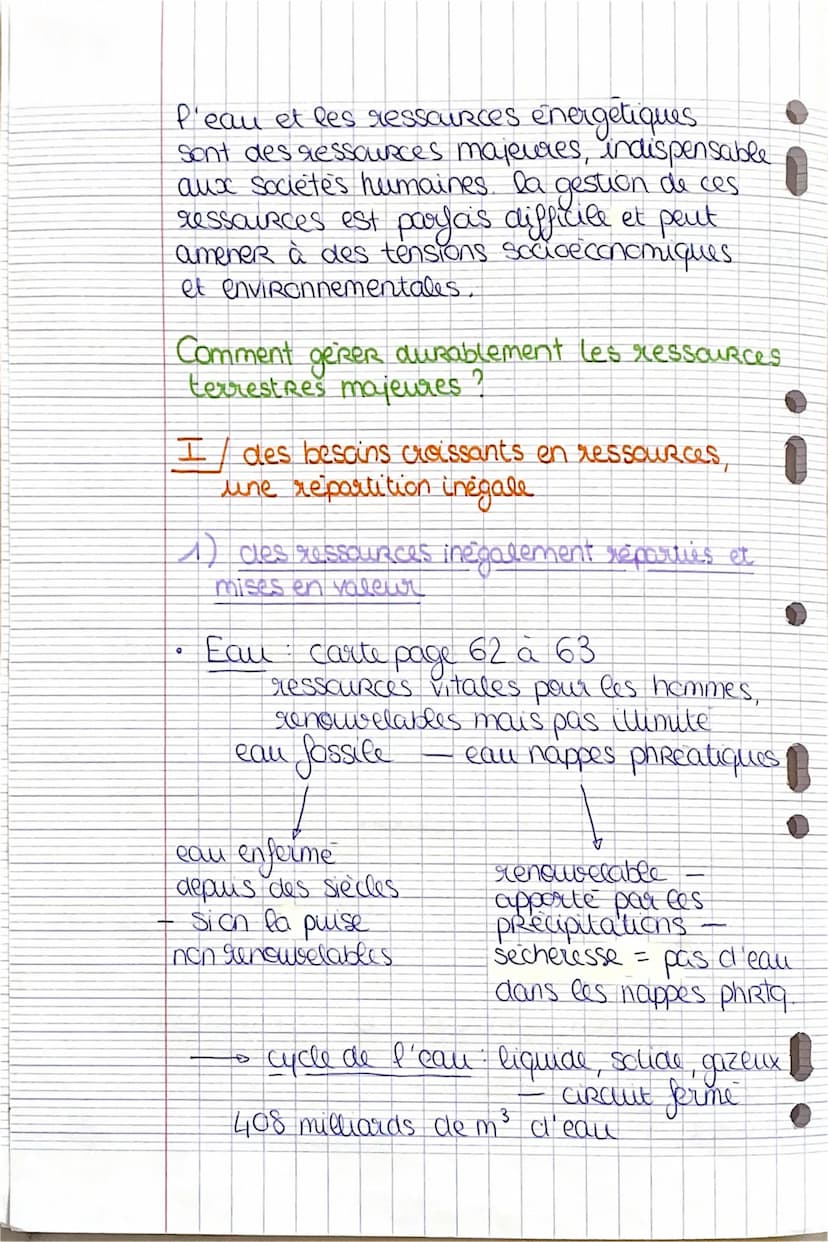 L'eau et les ressources énergétiques
sont des ressources majeures, indispensable
aux sociétés humaines. La gestion de ces
ressources est parfois difficile et peut
amener à des tensions socioéconomiques
et environnementales.
Comment gérer durablement les ressources
terrestres majeures ?
I / des besoins croissants en ressources,
une répartition inégale
1) des ressources inégalement réparties et
mises en valeur
• Eau : carte page 62 à 63
ressources vitales pour les hommes,
renouvelables mais pas illimité
eau fossile — eau nappes phréatiques
eau enfermé
depuis des siècles
- si on la puise
non renouvelables
renouvelable —
apporté par les
précipitations —
sécheresse = pas d'eau
dans les nappes phrtq.
→ cycle de l'eau : liquide, solide, gazeux
— circuit fermé
408 milliards de m³ d'eau